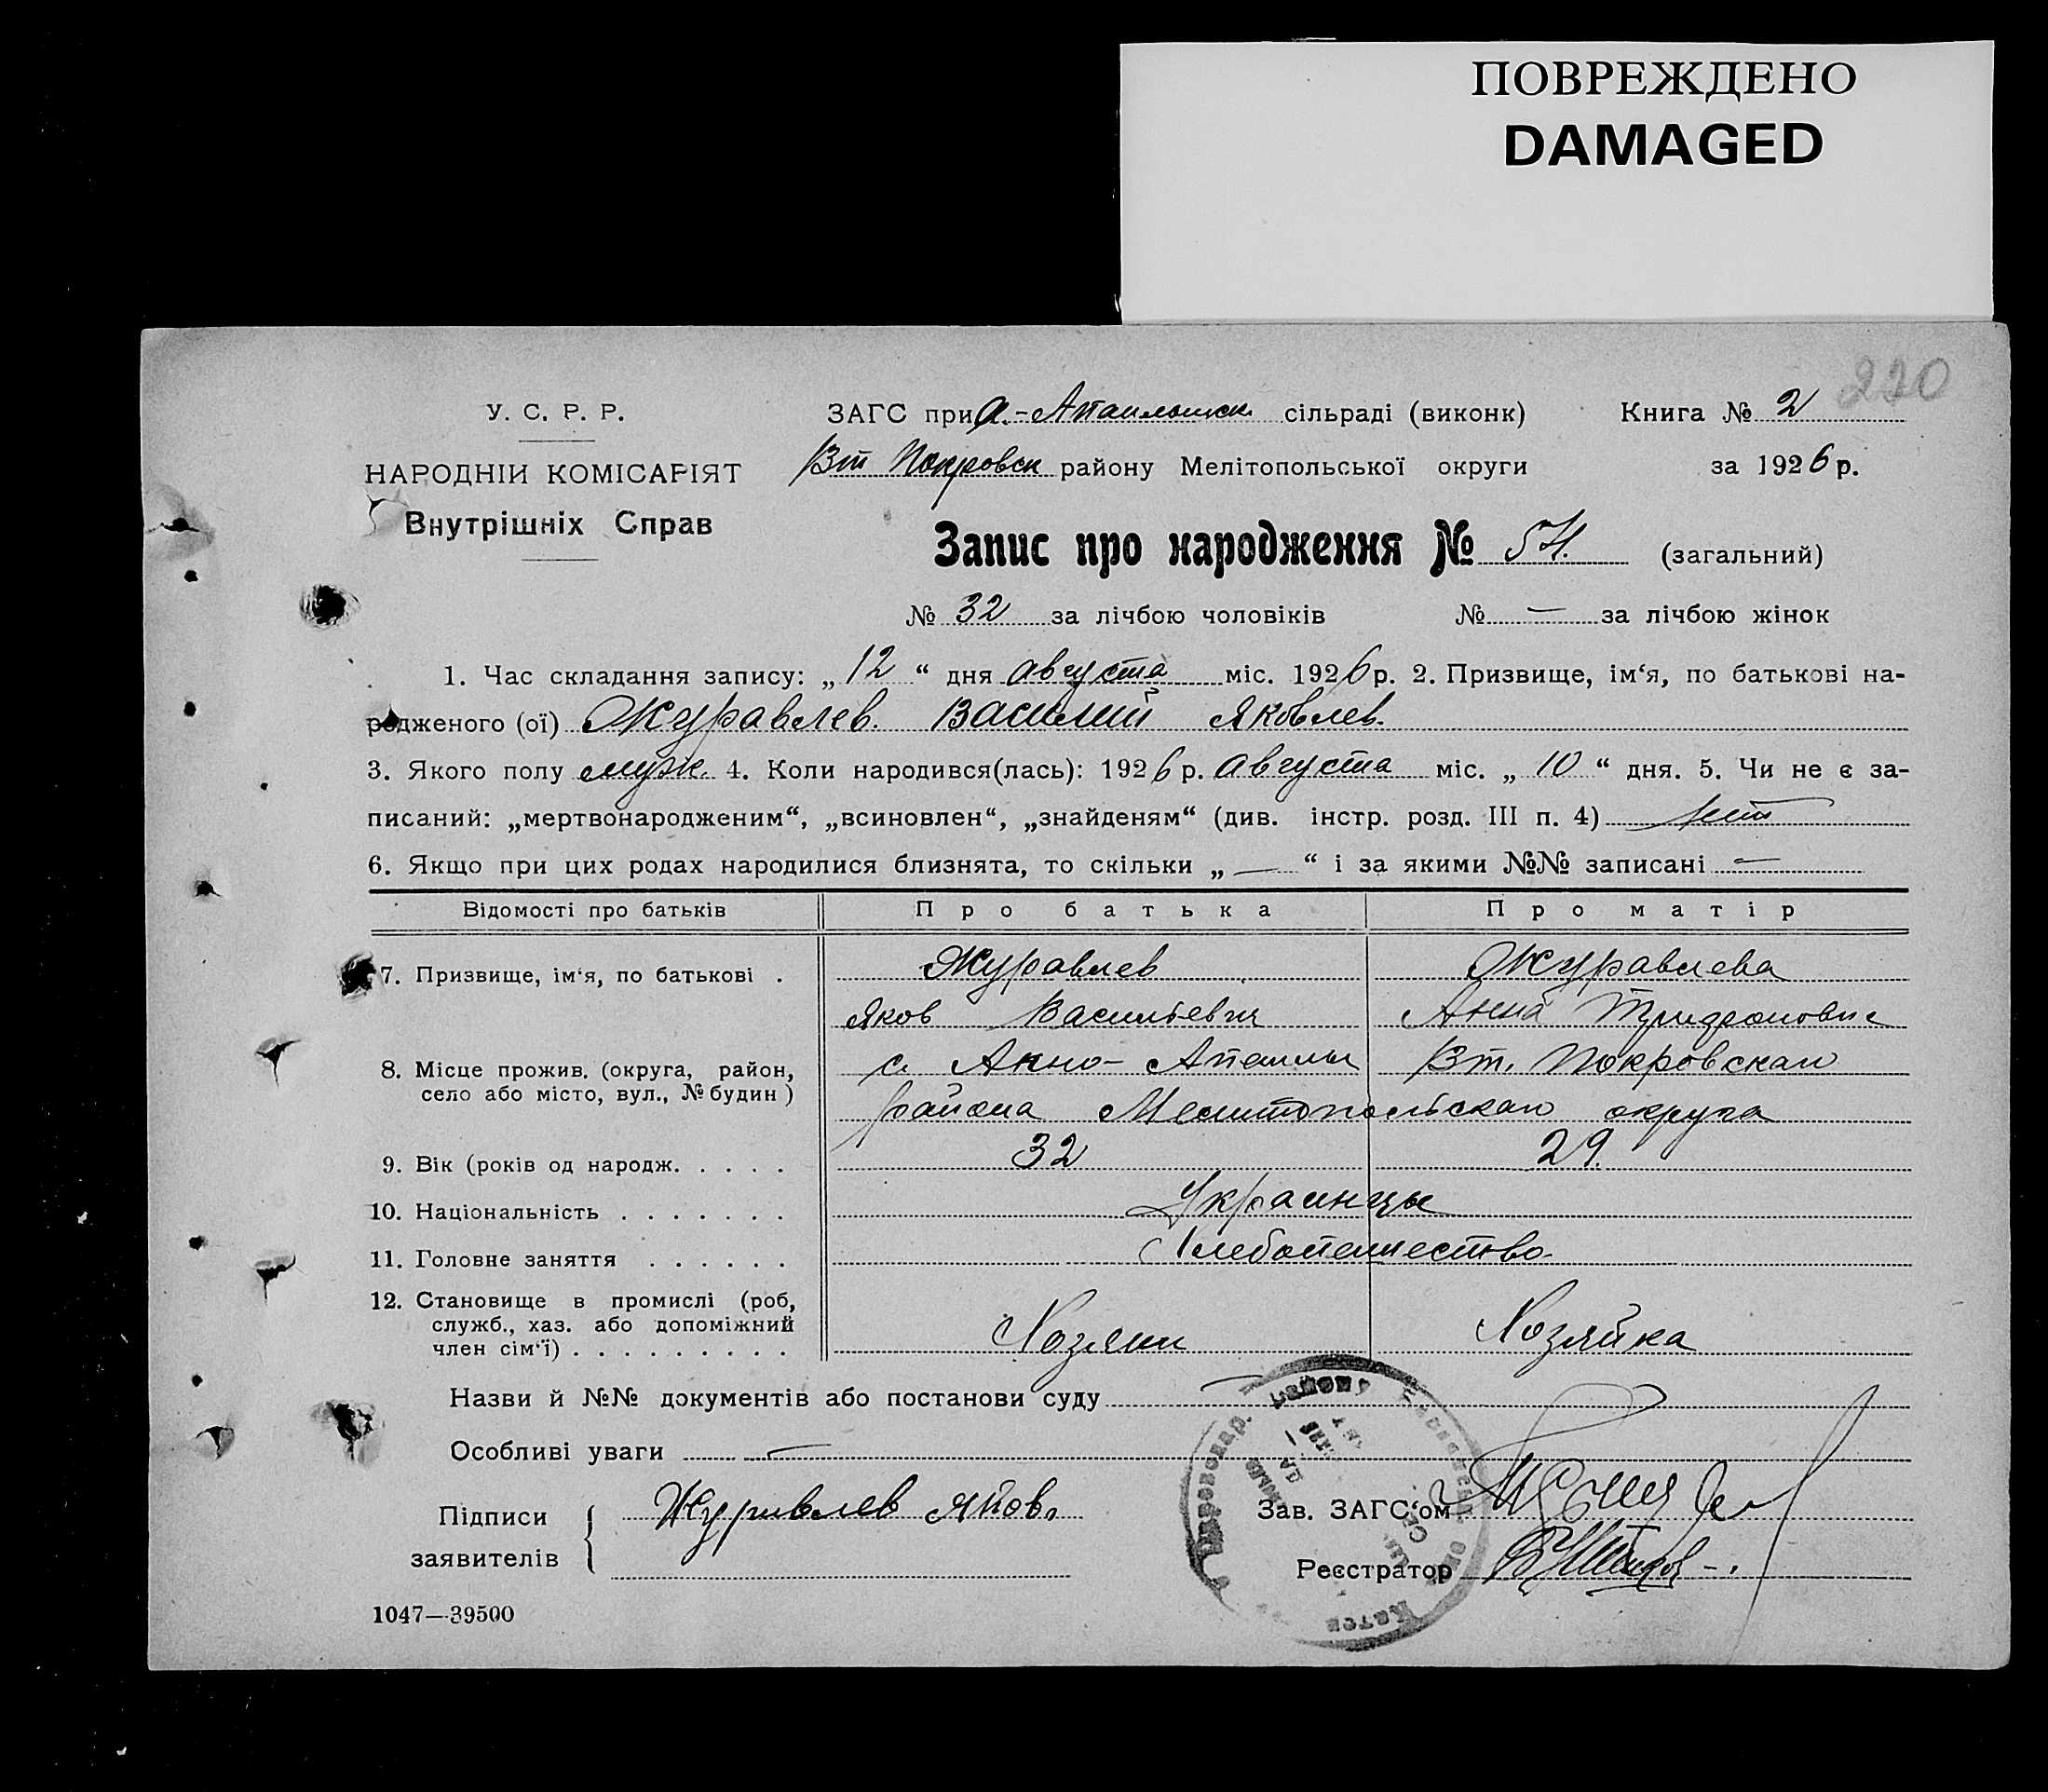 ПОВРЕЖДЕНО
DAMAGED
220
У. С. Р. Р.
ЗАГС при А.-Апаильшск. сільраді (виконк)
Книга № 2
НАРОДНІЙ КОМІСАРІЯТ
Вт Покровск району Мелітопольської округи
за 1926 р.
Внутрішніх Справ
Запис про народження № 54. (загальний)
№ 32 за лічбою чоловіків № — за лічбою жінок
1. Час складання запису: „12“ дня августа міс. 1926 р. 2. Призвище, ім‘я, по батькові на-
родженого (ої) Журавлев. Василий Яковлев.
3. Якого полу муж. 4. Коли народився(лась): 1926 р. августа міс. „10“ дня. 5. Чи не є за-
писаний: „мертвонародженим“, „всиновлен“, „знайденям“ (див. інстр. розд. III п. 4) нет
6. Якщо при цих родах народилися близнята, то скільки „—“ і за якими №№ записані —
Відомості про батьків Про батька Про матір
7. Призвище, ім‘я, по батькові . Журавлев Журавлева
Яков Васильевич Анна
8. Місце прожив. (округа, район, с. Акно- Вт. Покровскаго
село або місто, вул., № будин) района Мелитопольскаго округа
9. Вік (років од народж. . . . . 32 29.
10. Національність . . . . . . . Украинцы
11. Головне заняття . . . . . . Хлебопашество.
12. Становище в промислі (роб,
служб., хаз. або допоміжний
член сім‘ї) . . . . . . . . . Хозяин Хозяйка
Назви й №№ документів або постанови суду —
Особливі уваги —
Підписи
заявителів
Журавлев Яков.
Зав. ЗАГС‘ом
Реєстратор
1047—39500